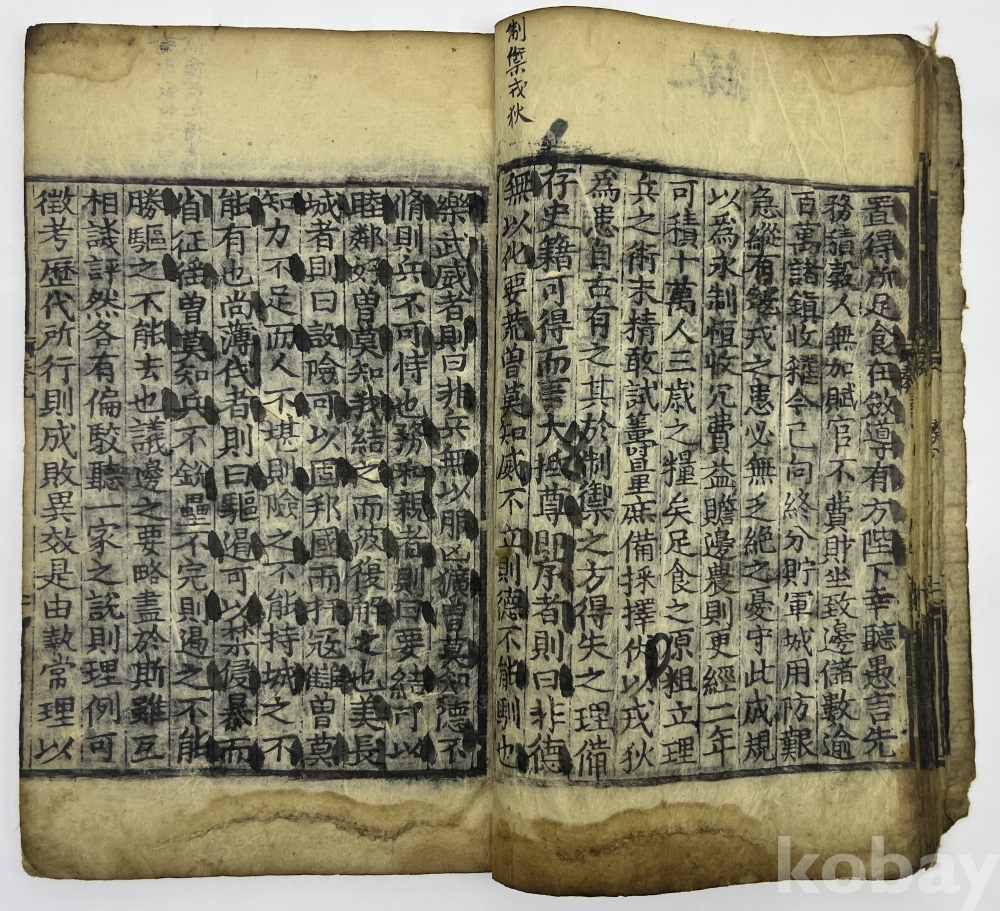 制禦戎狄
置得所足食在斂導有方陛下幸聽愚言先
務積穀人無加賦官不費財坐致邊儲數逾
百萬諸鎮收糴今已向終分貯軍城用防艱
急縱有寇戎之患必無乏絕之憂守此成規
以爲永制恒收冗費益贍邊農則更經二年
可積十萬人三歲之糧矣足食之原粗立理
兵之術未精敢試籌量庶備採擇伏以戎狄
爲患自古有之其於制禦之方得失之理備
存史籍可得而言大抵尊即序者則曰非德
無以化要荒曾莫知威不立則德不能馴也
樂武威者則曰非兵無以服凶獷曾莫知德不
脩則兵不可恃也務和親者則曰要結可以
睦鄰好曾莫知我結之而彼復解之也美長
城者則曰設險可以固邦國而扞寇讎曾莫
知力不足而人不堪則險之不能持城之不
能有也尚薄伐者則曰驅遏可以禁侵暴而
省征徭曾莫知兵不銳壘不完則遏之不能
勝驅之不能去也議邊之要略盡於斯雖互
相譏評然各有偏駁聽一家之說則理例可
徵考歷代所行則成敗異效是由執常理以
kobay